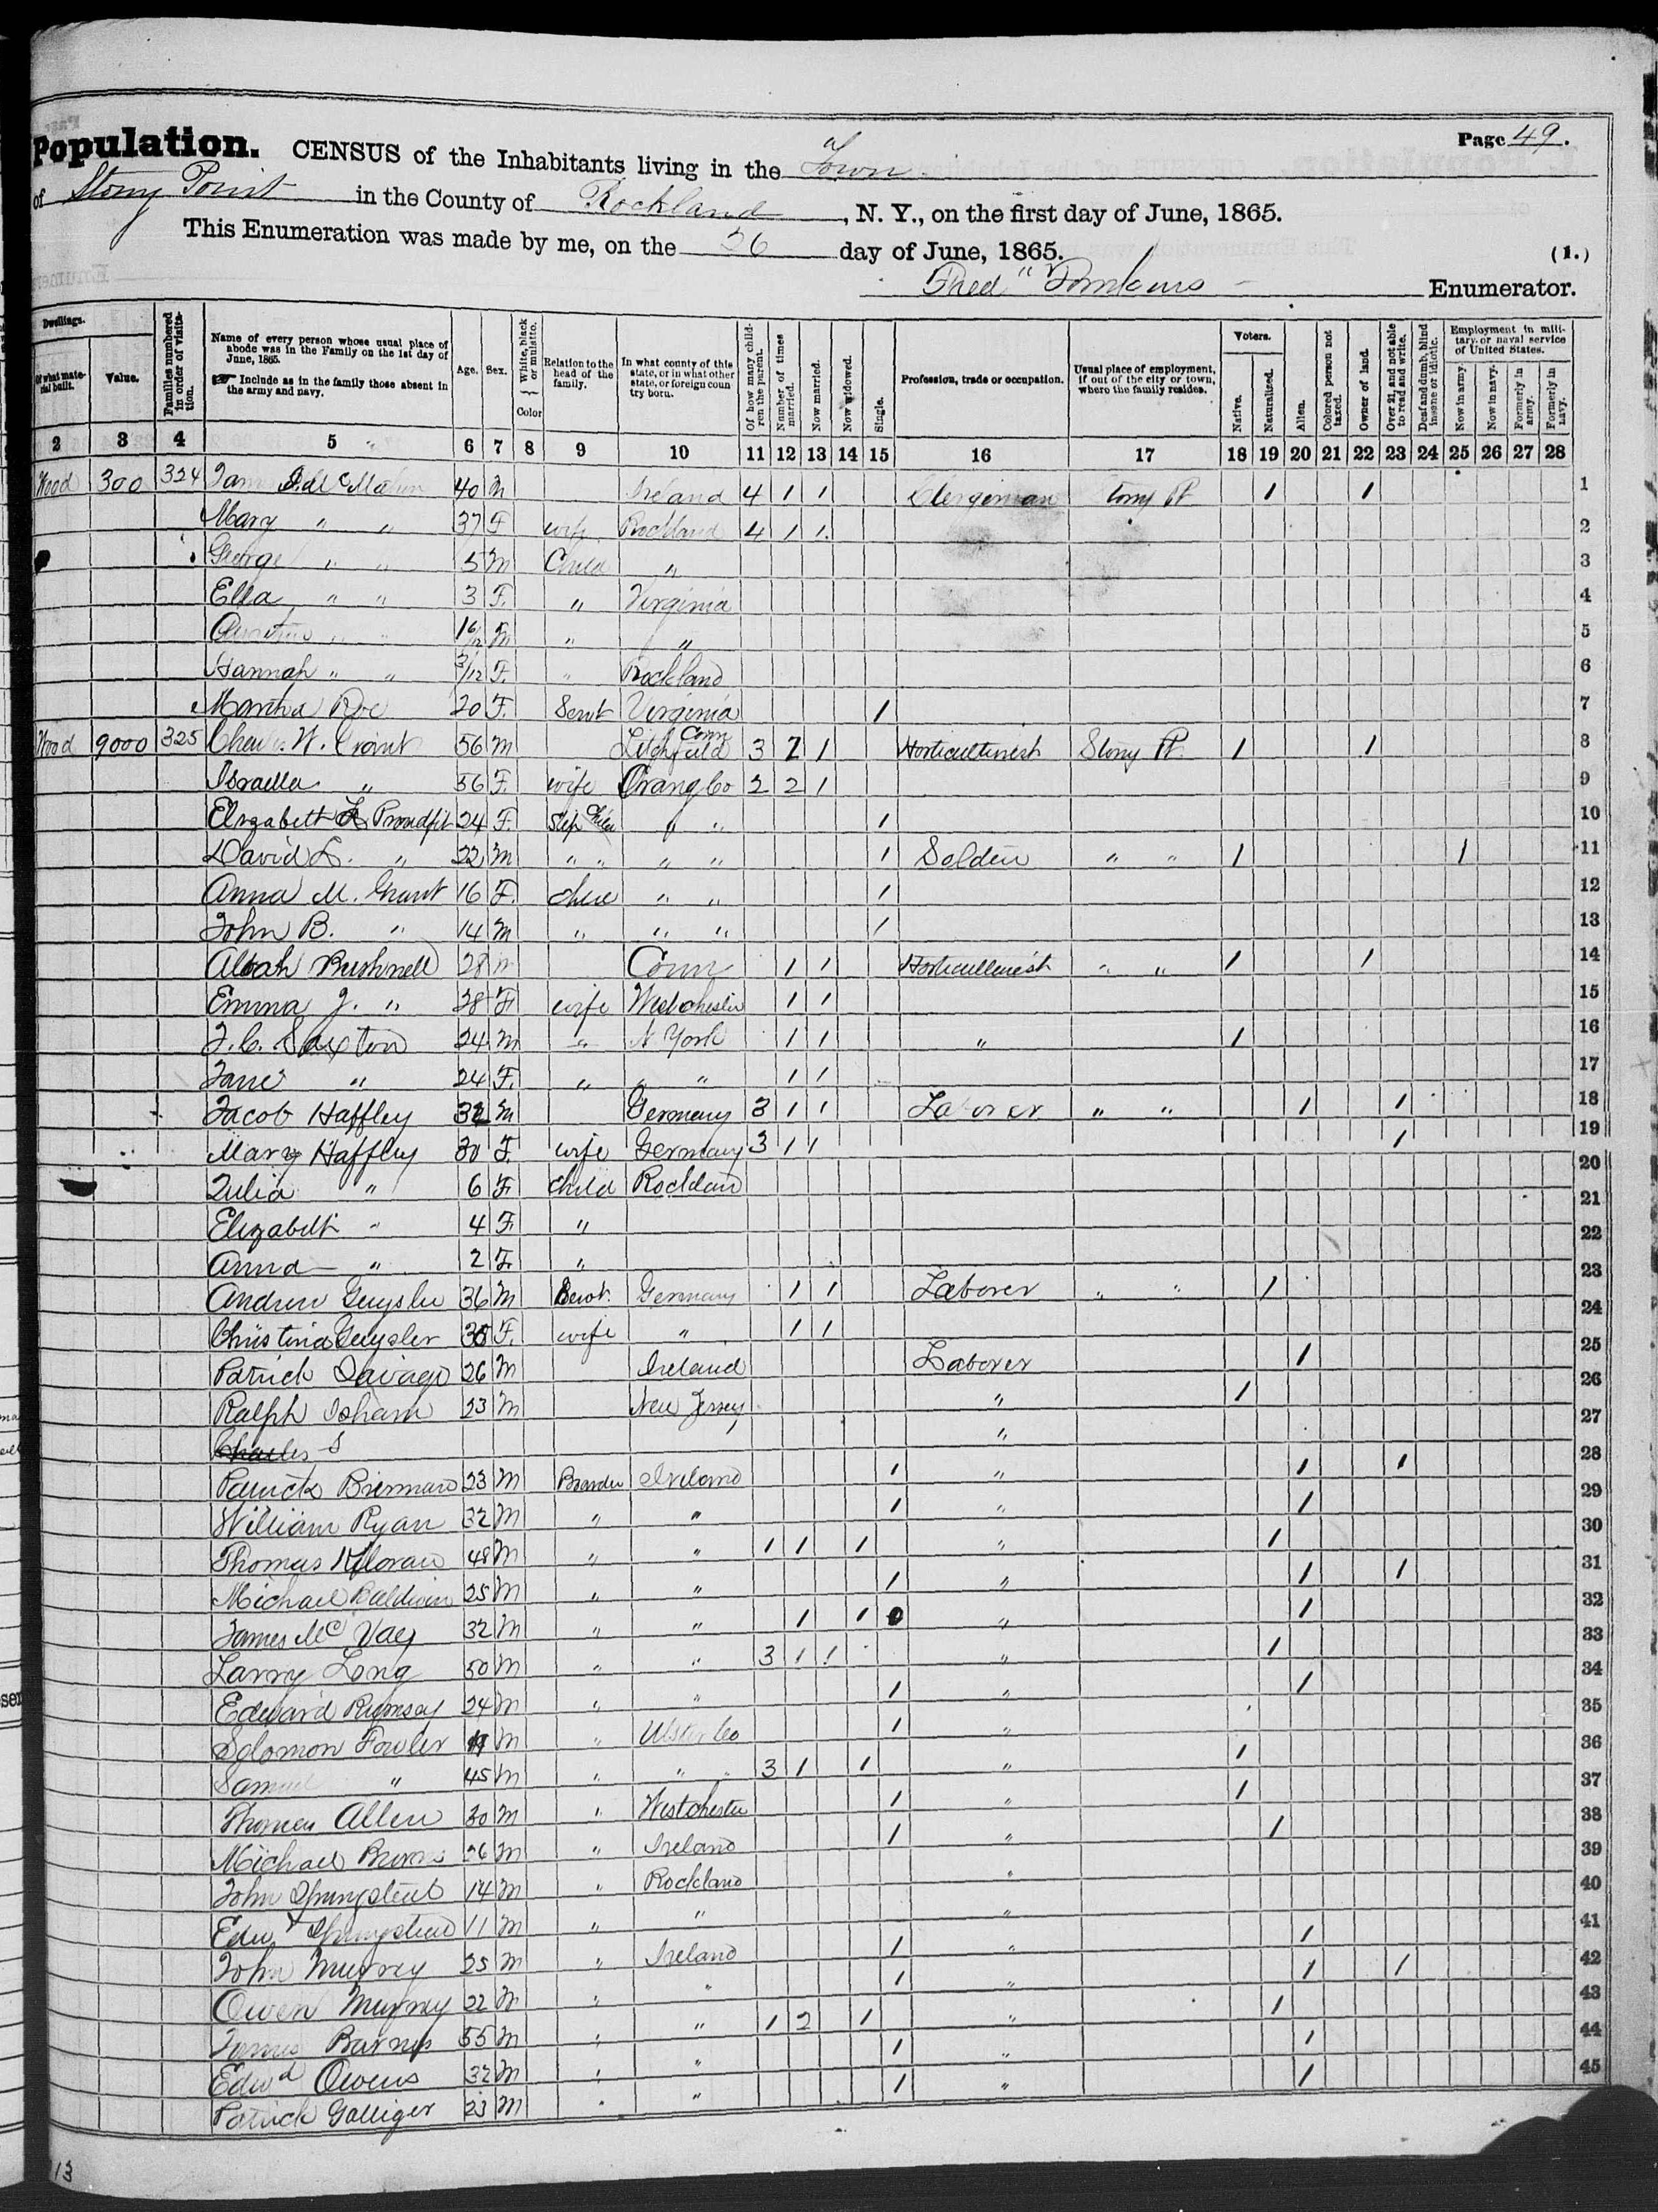 Population. CENSUS of the Inhabitants living in the Town Page 49.
of Stony Point in the County of Rockland, N. Y., on the first day of June, 1865.
This Enumeration was made by me, on the 26 day of June, 1865. (1.)
Fred Tomkins Enumerator.
Dwellings. Of what material built. Value. Families numbered in order of visitation. Name of every person whose usual place of abode was in the Family on the 1st day of June, 1865. ☞ Include as in the family those absent in the army and navy. Age. Sex. White, black or mulatto. Color Relation to the head of the family. In what county of this state, or in what other state, or foreign coun try born. Of how many children the parent. Number of times married. Now married. Now widowed. Single. Profession, trade or occupation. Usual place of employment, if out of the city or town, where the family resides. Voters. Native. Naturalized. Alien. Colored person not taxed. Owner of land. Over 21, and not able to read and write. Deaf and dumb, blind insane or idiotic. Employment in military or naval service of United States. Now in army. Now in navy. Formerly in army. Formerly in navy.
2 3 4 5 6 7 8 9 10 11 12 13 14 15 16 17 18 19 20 21 22 23 24 25 26 27 28
Wood 300 324 40 M Ireland 4 1 1 Clergiman Stony Pt 1 1 1
Mary " " 37 F wife Rockland 4 1 1 2
George " " 5 M Child " 3
Ella " " 3 F. " Virginia 4
" " M " " 5
Hannah " " 3/12 F. " Rockland 6
Martha Roe 20 F. Servt Virginia 1 7
Wood 9000 325 W. Grant 56 M Litchfield Conn 3 1 Horticulturist Stony Pt 1 1 8
Israella " 56 F. wife Orang Co 2 2 1 9
Elizabeth Proudfit 24 F. Step " " 1 10
David L. " 22 M " " " " 1 Soldier " " 1 1 11
Anna M. Grant 16 F. " " 1 12
John B. " 14 M " " " 1 13
Alvah Bushnell 28 M Conn 1 1 Horticulturist " " 1 1 14
Emma J. " 28 F wife Westchester 1 1 15
J. C. Saxton 24 M N York 1 1 " 1 16
Jane " 24 F. " " " 1 1 17
Jacob Haffley 32 M Germany 3 1 1 Laborer " " 1 1 18
Mary Haffley 30 F. wife Germany 3 1 1 1 19
Julia " 6 F Child Rockland 20
Elizabeth " 4 F. " 21
Anna " 2 F. " 22
Andrew Guysler 36 M Servt. Germany 1 1 Laborer " " 1 23
Christina Guysler F. wife " 1 1 24
Patrick Savage 26 M Ireland Laborer 1 25
Ralph Isham 23 M New Jersey " 1 26
Charles S " 27
Patrick Brennan 23 M Boarder Ireland 1 " 1 1 28
William Ryan 32 M " " 1 " 1 29
Thomas 48 M " " 1 1 1 " 1 30
Michael Baldwin 25 M " " 1 " 1 1 31
James McVay 32 M " " 1 1 " 1 32
Larry Long 50 M " " 3 1 1 " 1 33
Edward Rumsay 24 M " " 1 " 1 34
Solomon Fowler M " Ulster Co 1 " 35
Samuel " 45 M " " " 3 1 1 " 1 36
Thomas Allen 30 M " Westchester 1 " 1 37
Michael 26 M " Ireland 1 " 1 38
John Springsteed 14 M " Rockland " 39
Edw Springsteed 11 M " " " 40
John Murrey 25 M " Ireland 1 " 1 41
Owen Murray 22 M " " 1 " 1 1 42
James Barnes 55 M " " 1 2 1 " 1 43
Edwd Owens 32 M " " 1 " 1 44
Patrick Galliger 23 M " " 1 " 1 45
13